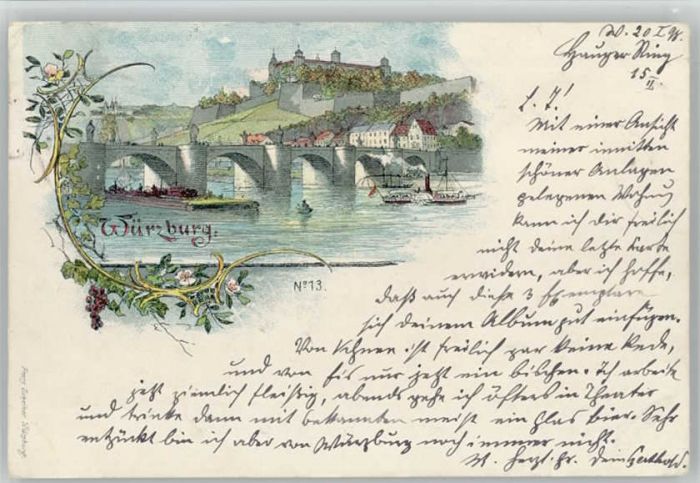 W. 20 I 98.
Hauger Ring
15 II.
L. T!
Mit einer Ansicht
meiner inmitten
schöner Anlagen
gelegenen Wohng
kann ich dir freilich
nicht deine letzte Karte
erwidern, aber ich hoffe,
daß auch diese 3 Exemplare
sich deinem Album gut einfügen.
Von Schnee ist freilich gar keine Rede,
und von Eis nur jetzt ein bischen. Ich arbeite
jetzt ziemlich fleißig, abends gehe ich öfters in Theater
und trinke dann mit bekannten meist ein Glas bier. Sehr
entzückt bin ich aber von Würzburg noch immer nicht.
M. herzl. Gr. dein Berthold.
Würzburg.
No 13.